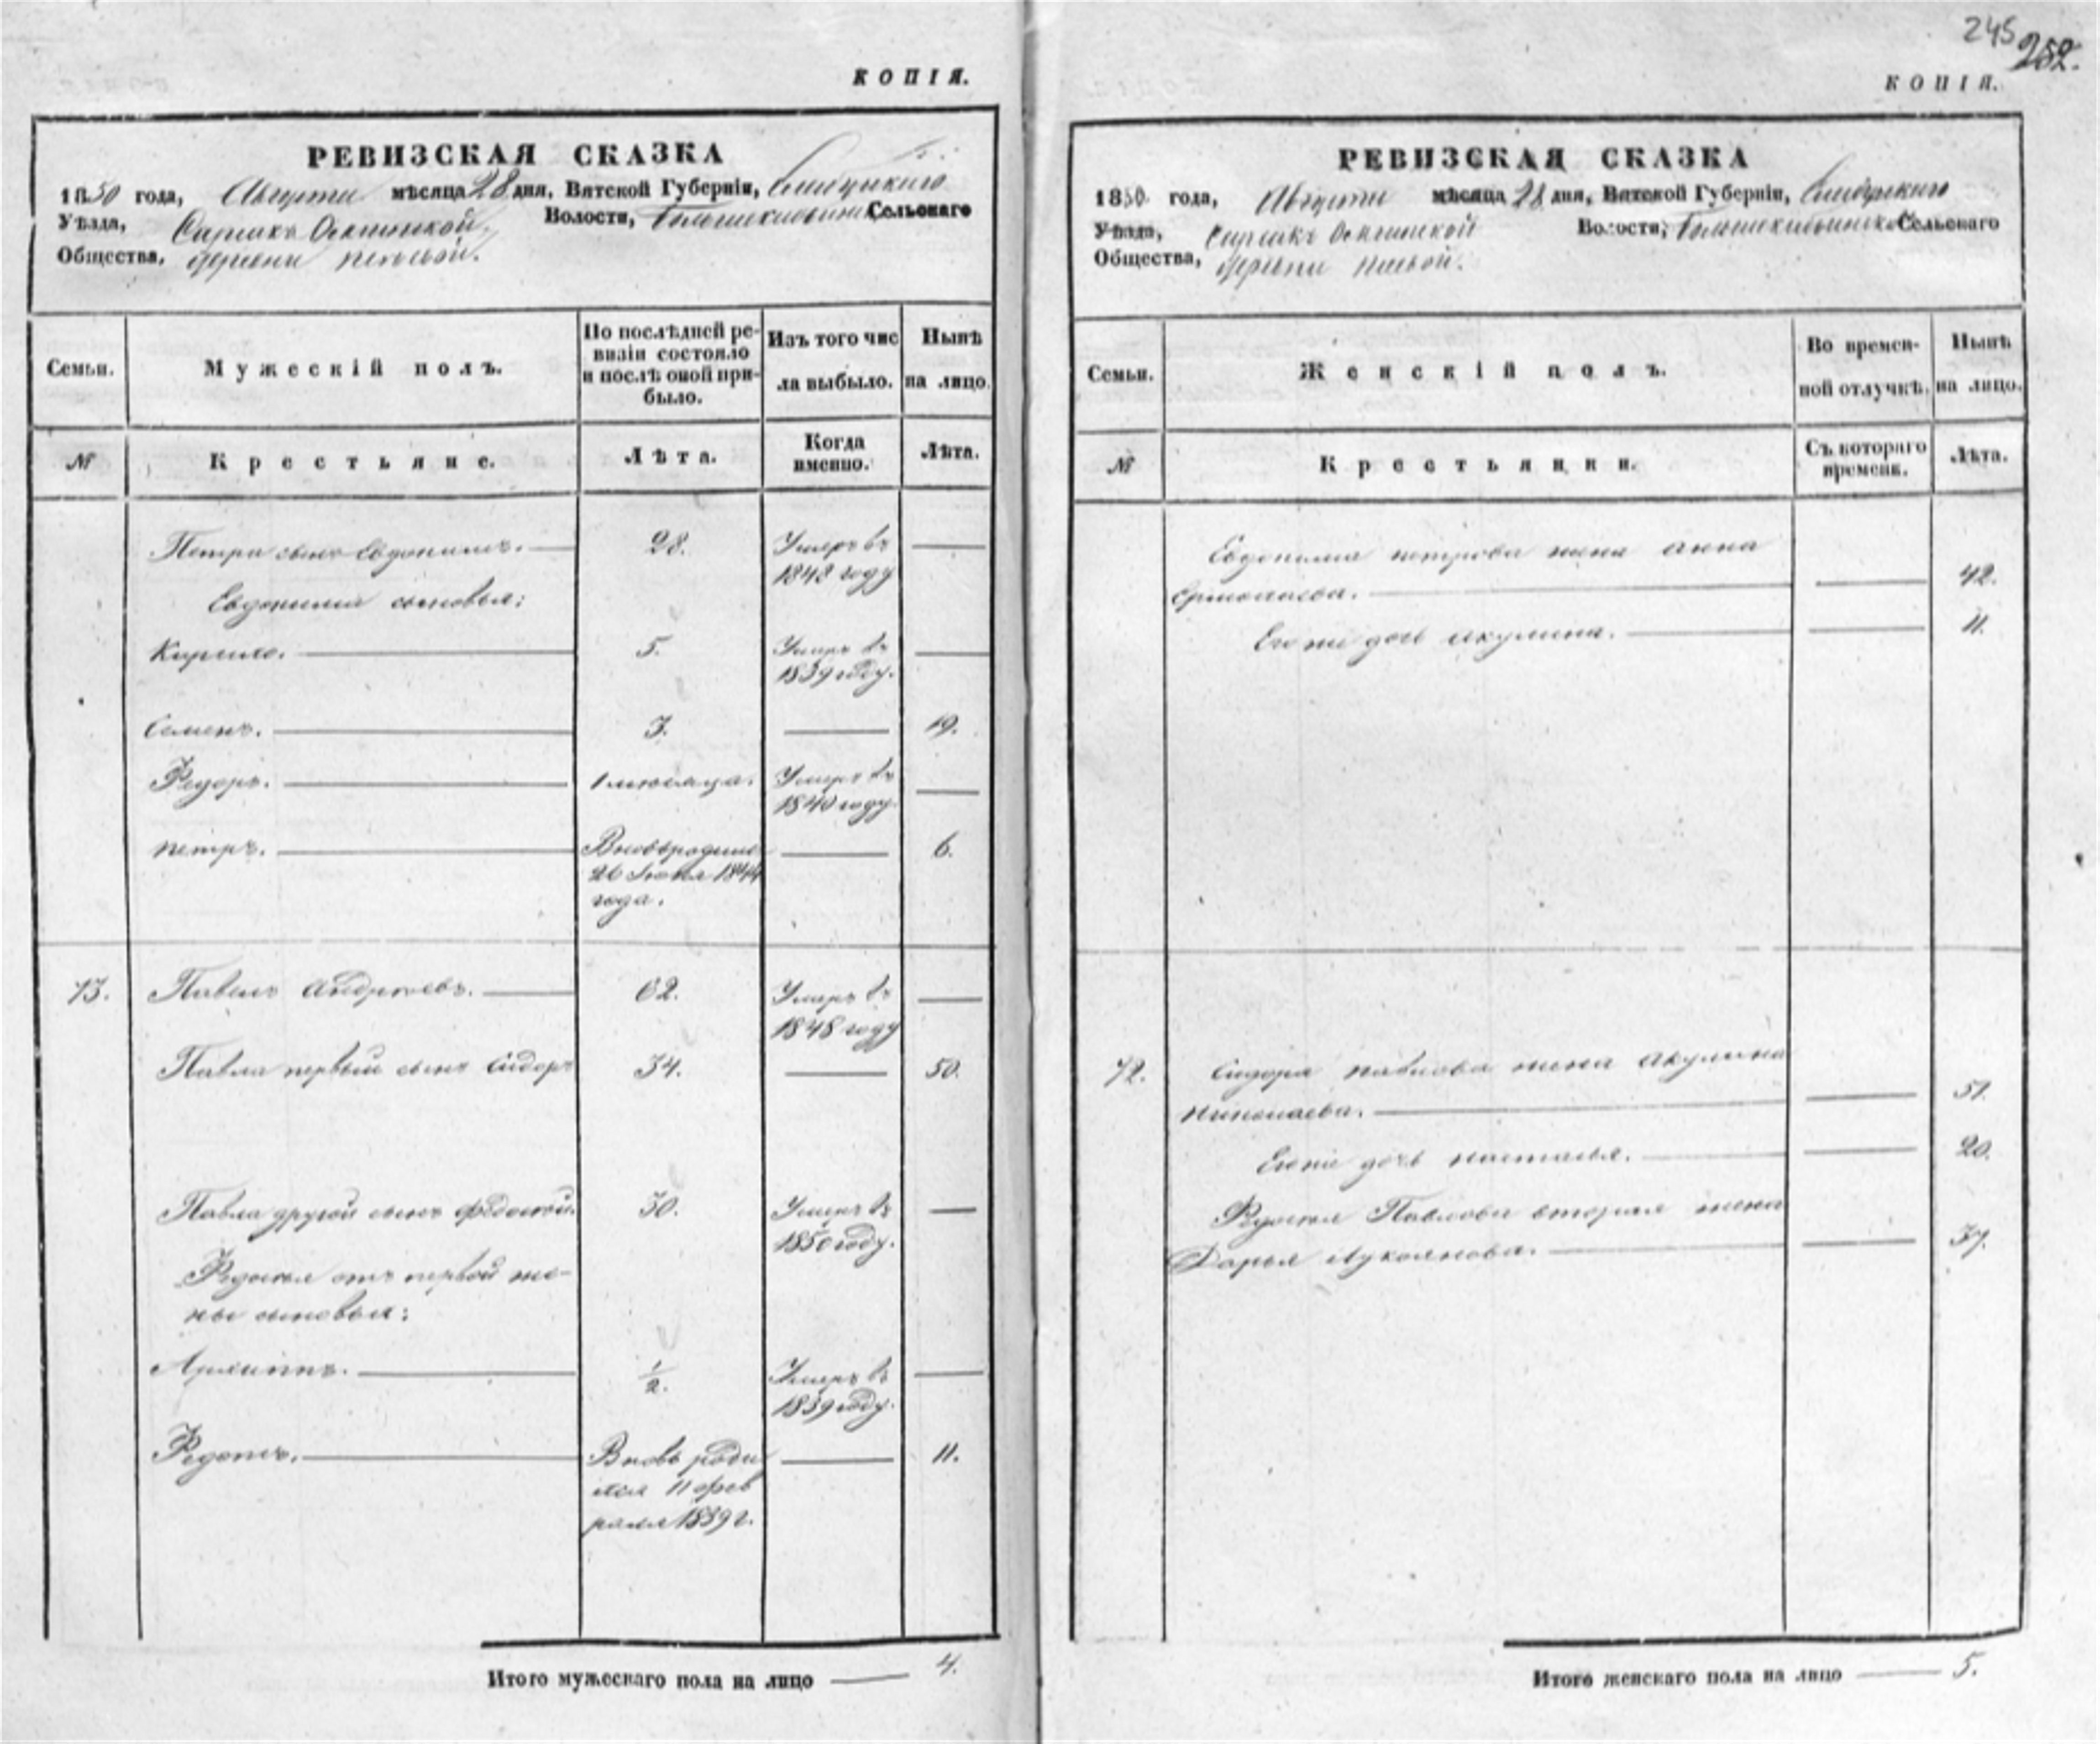 245
252.
КОПІЯ.
РЕВИЗСКАЯ СКАЗКА
1850 года, Августа мѣсяца 28 дня, Вятской Губерніи,
Уѣзда, Волости, Сельскаго
Общества, деревни
Семьи.
Мужескій полъ.
По послѣдней ре-
визіи состояло
и послѣ оной при-
было.
Изъ того чис
ла выбыло.
Нынѣ
на лицо.
№
Крестьяне.
Лѣта.
Когда
именно.
Лѣта.
Петра сынъ Евдокимъ. 28. Умеръ въ
1848 году
Евдокима сыновья:
Кирило. 5. Умеръ въ
1839 году.
Семенъ. 3. 19.
Федоръ. 1 мѣсяца. Умеръ въ
1840 году
Петръ. Вновь родился 6.
26 Іюня 1844
года.
73. Павелъ Андреевъ. 62. Умеръ въ
1848 году
Павла первый сынъ Сидоръ 34. 50.
Павла другой сынъ Федосей. 30. Умеръ въ
1850 году.
Федосея отъ первой же-
ны сыновья:
Архиппъ. 1/2. Умеръ въ
1839 году.
Федотъ. Вновь роди 11.
лся 11 фев
раля 1839 г.
Итого мужескаго пола на лицо 4.
КОПІЯ.
РЕВИЗСКАЯ СКАЗКА
1850 года, Августа мѣсяца 28 дня, Вятской Губерніи,
Уѣзда, Волости, Сельскаго
Общества, деревни
Семьи.
Женскій полъ.
Во времен-
ной отлучкѣ.
Нынѣ
на лицо.
№
Крестьянки.
Съ котораго
времени.
Лѣта.
Евдокима Петрова жена Анна
Ермолаева. 42.
Его же дочь Акулина. 11.
72. Сидора Павлова жена Акулина
Николаева. 51.
Его же дочь Настасья. 20.
Федосея Павлова вторая жена
Дарья Лукоянова. 37.
Итого женскаго пола на лицо 5.